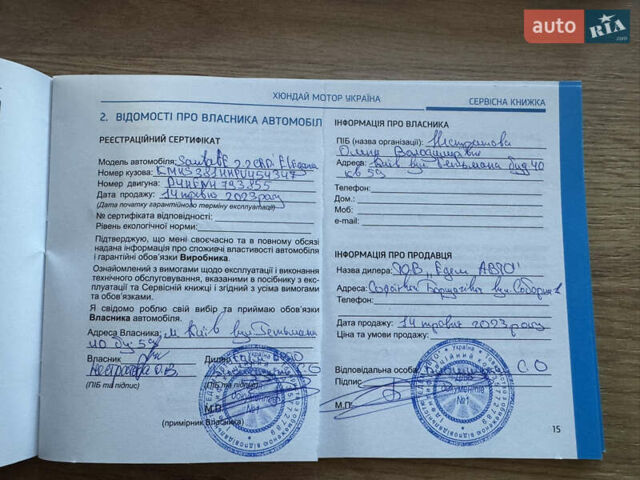 auto RIA.com
ХЮНДАЙ МОТОР УКРАЇНА
СЕРВІСНА КНИЖКА
2. ВІДОМОСТІ ПРО ВЛАСНИКА АВТОМОБІЛ
РЕЄСТРАЦІЙНИЙ СЕРТИФІКАТ
Модель автомобіля: Santa Fe 2.2 CRDI Elegance
Номер кузова:
Номер двигуна:
Дата продажу: 14 травня 2023 року
(Дата початку гарантійного терміну експлуатації)
№ сертифіката відповідності:
Рівень екологічної норми:
Підтверджую, що мені своєчасно та в повному обсязі
надана інформація про споживчі властивості автомобіля
і гарантійні обов'язки Виробника.
Ознайомлений з вимогами щодо експлуатації і виконання
технічного обслуговування, вказаними в посібнику з екс-
плуатації та Сервісній книжці і згідний з усіма вимогами
та обов'язками.
Я свідомо роблю свій вибір та приймаю обов'язки
Власника автомобіля.
Адреса Власника: м. Київ вул
Власник
Дилер
(ПІБ та підпис)
(ПІБ та підпис)
М.П.
(примірник Власника)
ІНФОРМАЦІЯ ПРО ВЛАСНИКА
ПІБ (назва організації):
Адреса: Київ вул буд 40
кв 59
Телефон:
Дом.:
Моб:
e-mail:
ІНФОРМАЦІЯ ПРО ПРОДАВЦЯ
Назва дилера: ТОВ „Едем АВТО"
Адреса: Софіївська Борщагівка вул. Соборна
Телефон:
Дата продажу: 14 травня 2023 року
Ціна та умови продажу:
Відповідальна особа: С. О
Підпис
М.П.
Для документів №1
Для документів №1
15